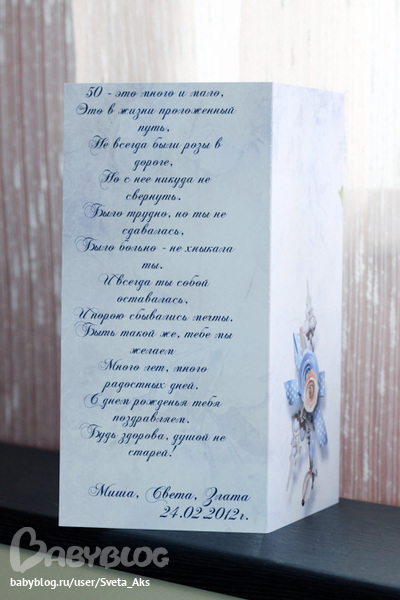 50 - это много и мало,
Это в жизни проложенный
путь,
Не всегда были розы в
дороге,
Но с нее никуда не
свернуть.
Было трудно, но ты не
сдавалась,
Было больно - не хныкала
ты.
И всегда ты собой
оставалась,
И порою сбывались мечты.
Быть такой же, тебе мы
желаем
Много лет, много
радостных дней.
С днем рожденья тебя
поздравляем.
Будь здорова, душой не
старей!
Миша, Света, Злата
24.02.2012г.
BABYBLOG
babyblog.ru/user/Sveta_Aks